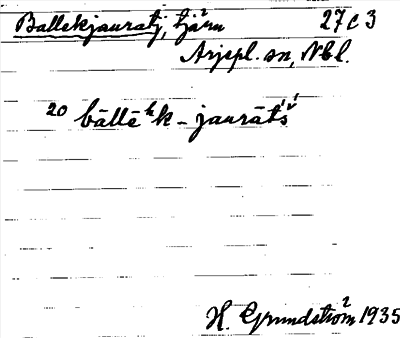 Ballekjauratj, tjärn 27c3
Arjepl. sn, Nbl.
20 bāllēʰk - jaurāt́ś
H. Grundström 1935